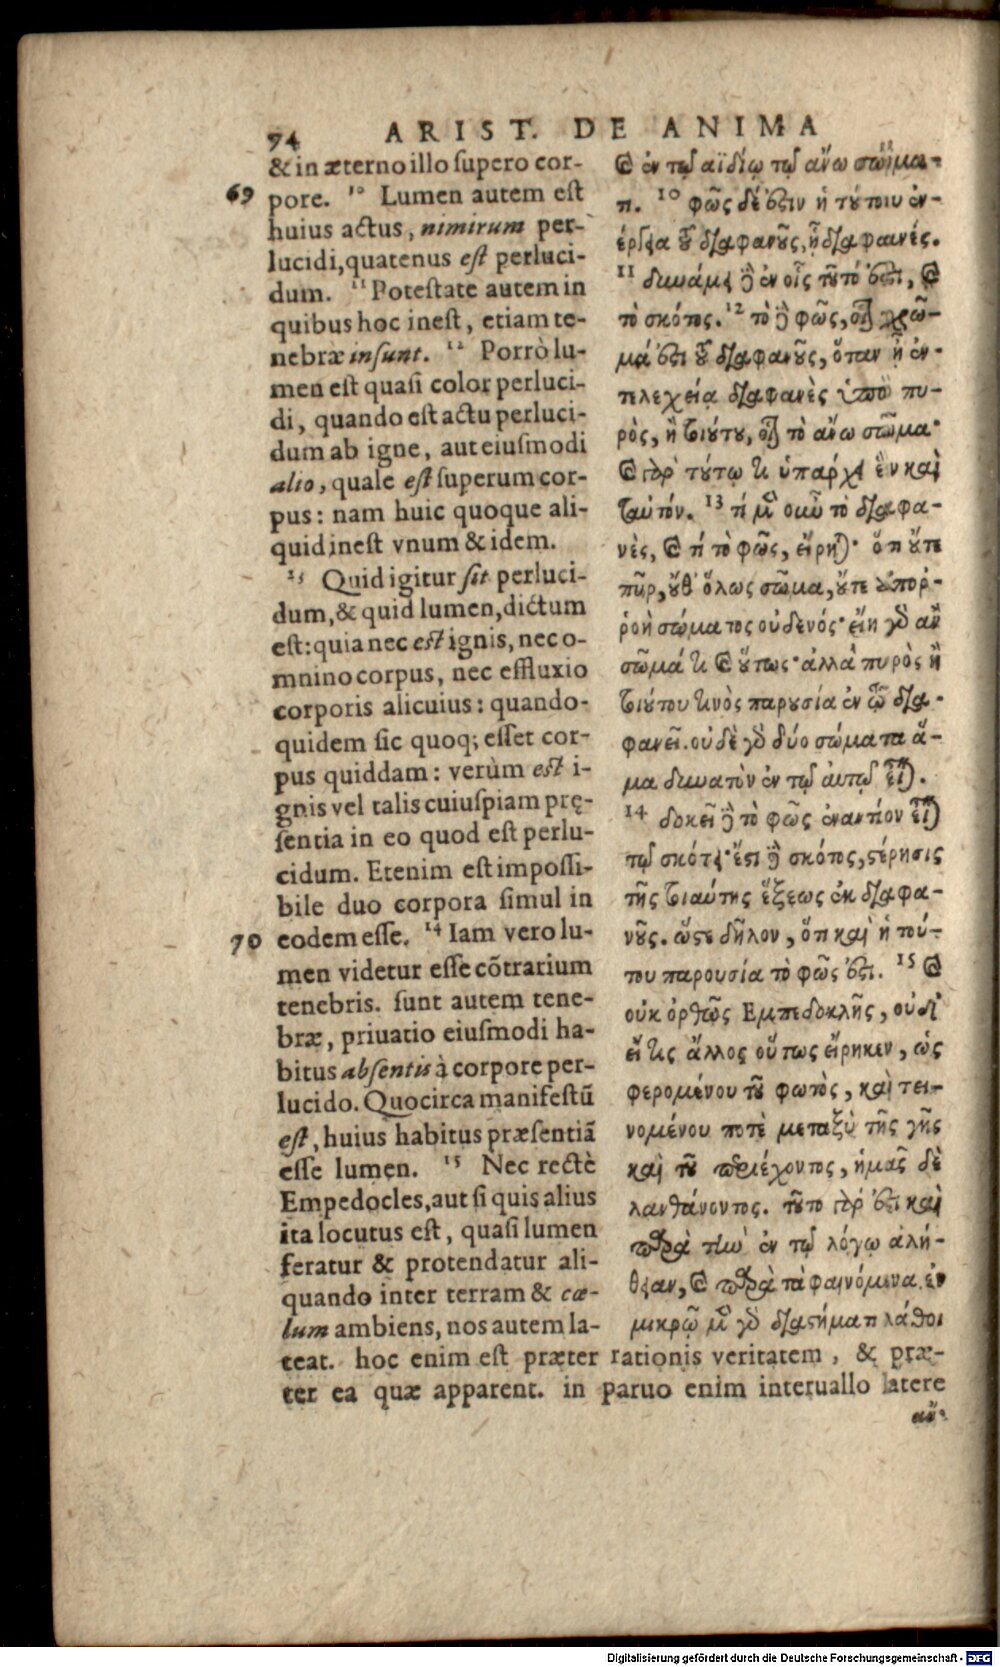 74 ARIST. DE ANIMA
& in æterno illo supero cor-
69 pore. 10 Lumen autem est
huius actus, nimirum per-
lucidi, quatenus est perluci-
dum. 11 Potestate autem in
quibus hoc inest, etiam te-
nebræ insunt. 12 Porrò lu-
men est quasi color perluci-
di, quando est actu perluci-
dum ab igne, aut eiusmodi
alio, quale est superum cor-
pus: nam huic quoque ali-
quid inest vnum & idem.
13 Quid igitur sit perluci-
dum, & quid lumen, dictum
est: quia nec est ignis, nec o-
mnino corpus, nec effluxio
corporis alicuius: quando-
quidem sic quoq; esset cor-
pus quiddam: verùm est i-
gnis vel talis cuiuspiam prę-
sentia in eo quod est perlu-
cidum. Etenim est impossi-
bile duo corpora simul in
70 eodem esse. 14 Iam vero lu-
men videtur esse cõtrarium
tenebris. sunt autem tene-
bræ, priuatio eiusmodi ha-
bitus absentis à corpore per-
lucido. Quocirca manifestũ
est, huius habitus præsentiã
esse lumen. 15 Nec rectè
Empedocles, aut si quis alius
ita locutus est, quasi lumen
feratur & protendatur ali-
quando inter terram & cæ-
lum ambiens, nos autem la-
teat. hoc enim est præter rationis veritatem, & præ-
ter ea quæ apparent. in paruo enim interuallo latere
καὶ ἐν τῷ αϊδίῳ τῷ ἄνω σώμα-
τι. 10 φῶς δέ ἐστιν ἡ τούτου ἐν-
έργεια τοῦ διαφανοῦς, ᾗ διαφανές.
11 δυνάμει δὲ ἐν οἷς τοῦτό ἐστι, καὶ
τὸ σκότος. 12 τὸ δὲ φῶς, οἷον χρῶ-
μά ἐστι τοῦ διαφανοῦς, ὅταν ᾖ ἐν-
τελεχείᾳ διαφανὲς ὑπὸ πυ-
ρὸς, ἢ τοιούτου, οἷον τὸ ἄνω σῶμα·
καὶ γὰρ τούτῳ τι ὑπάρχει ἓν καὶ
ταυτόν. 13 τί μὲν οὖν τὸ διαφα-
νὲς, καὶ τί τὸ φῶς, εἴρηται· ὅτι οὔτε
πῦρ, οὔθ' ὅλως σῶμα, οὔτε ἀπορ-
ροὴ σώματος οὐδενός· εἴη γὰρ ἂν
σῶμά τι καὶ οὕτως· ἀλλὰ πυρὸς ἢ
τοιούτου τινὸς παρουσία ἐν τῷ δια-
φανεῖ. οὐδὲ γὰρ δύο σώματα ἅ-
μα δυνατὸν ἐν τῷ αὐτῷ εἶναι.
14 δοκεῖ δὲ τὸ φῶς ἐναντίον εἶναι
τῷ σκότει· ἔστι δὲ σκότος, στέρησις
τῆς τοιαύτης ἕξεως ἐκ διαφα-
νοῦς. ὥστε δῆλον, ὅτι καὶ ἡ τού-
του παρουσία τὸ φῶς ἐστι. 15 καὶ
οὐκ ὀρθῶς Εμπεδοκλῆς, οὐδ'
εἴ τις ἄλλος οὕτως εἴρηκεν, ὡς
φερομένου τοῦ φωτὸς, καὶ τει-
νομένου ποτὲ μεταξὺ τῆς γῆς
καὶ τοῦ περιέχοντος, ἡμᾶς δὲ
λανθάνοντος. τοῦτο γάρ ἐστι καὶ
παρὰ τὴν ἐν τῷ λόγῳ ἀλή-
θειαν, καὶ παρὰ τὰ φαινόμενα. ἐν
μικρῷ μὲν γὰρ διαστήματι λάθοι
ἂν·
Digitalisierung gefördert durch die Deutsche Forschungsgemeinschaft - DFG